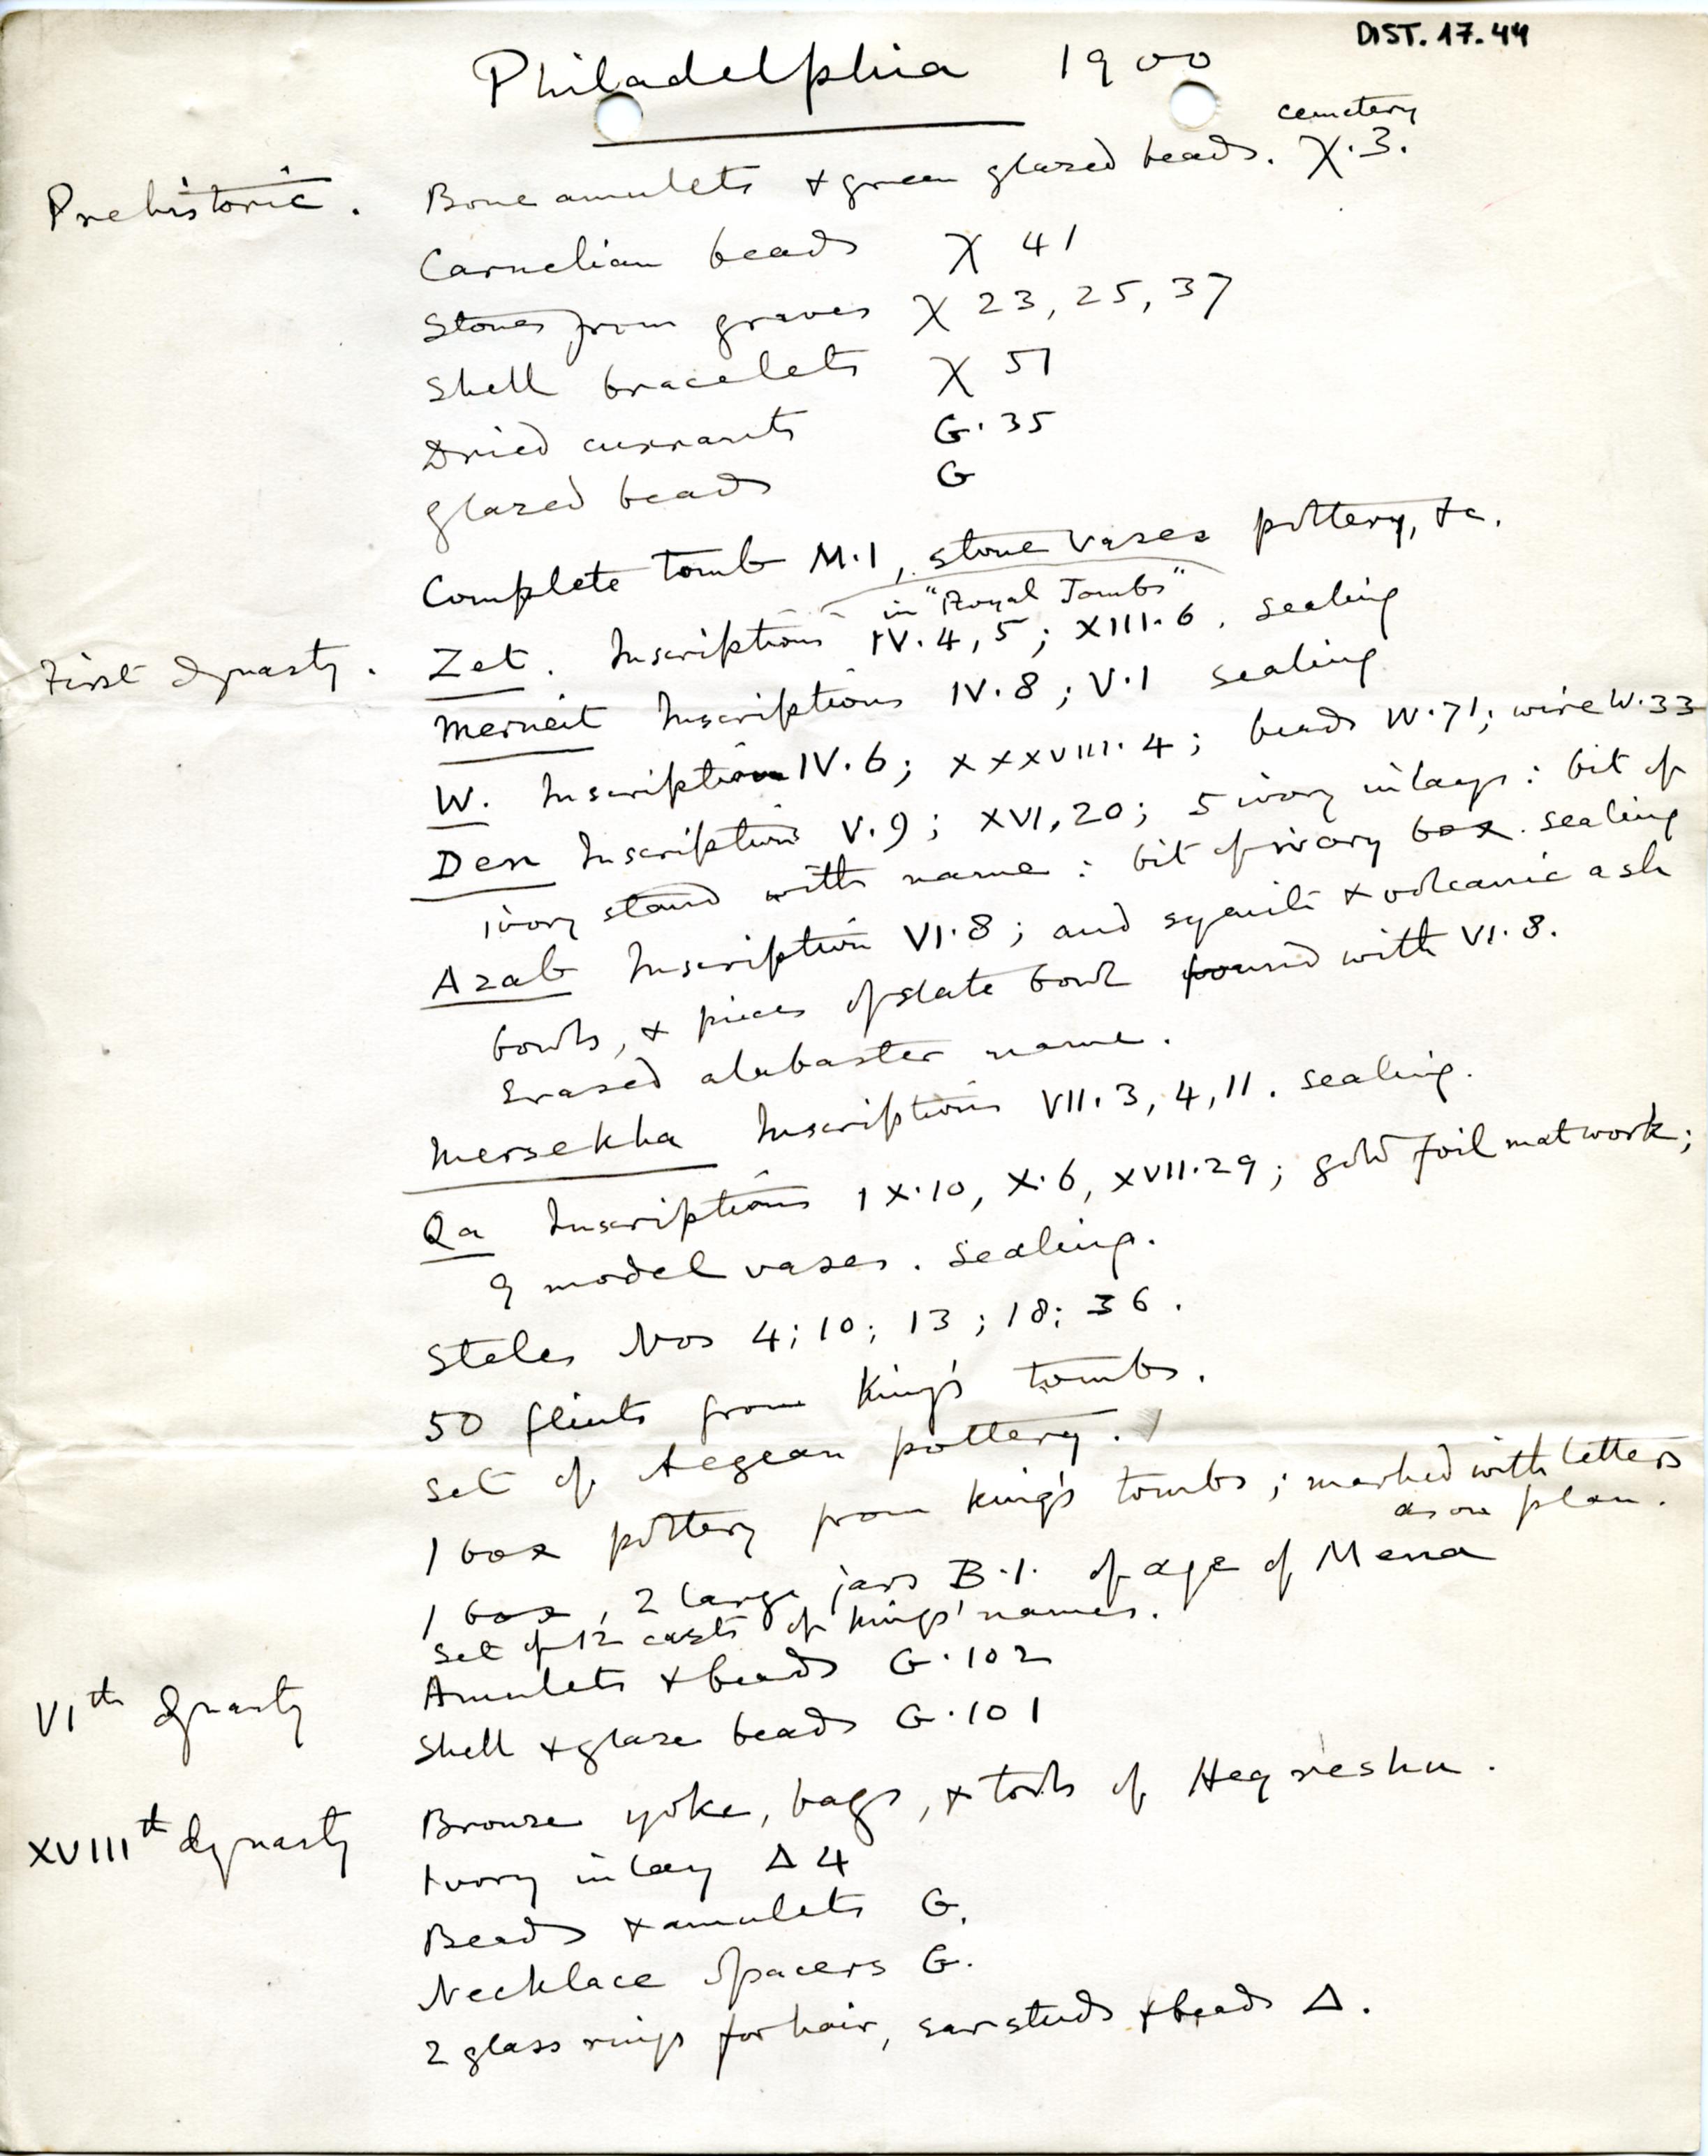 DIST. 17.44
Philadelphia 1900
cemetery
Prehistoric. Bone amulets + green glazed beads. X.3.
Carnelian beads X 41
Stones from graves X 23, 25, 37
Shell bracelets X 51
Dried currants G.35
glazed beads G
Complete tomb M.1, stone vases pottery, &c.
in "Royal Tombs"
First dynasty. Zet. Inscriptions IV.4, 5; XIII.6. sealing
Merneit Inscriptions IV.8; V.1 sealing
W. Inscription IV.6; XXXVIII.4; beads W.71; wire W.33
Den Inscriptions V.9; XVI, 20; 5 ivory inlays: bit of
ivory stand with name: bit of ivory box. sealing
Azab Inscription VI.8; and syenite + volcanic ash
bowls, + pieces of slate bowl found with VI.8.
Erased alabaster name.
Mersekha Inscriptions VII.3, 4, 11. sealing.
Qa Inscriptions IX.10, X.6, XVII.29; gold foil matwork;
9 model vases. sealing.
Steles Nos 4; 10; 13; 18; 36.
50 flints from King's tombs.
Set of Aegean pottery.
1 box pottery from King's tombs; marked with letters
as on plan.
1 box, 2 large jars B.1. of age of Mena
Set of 12 casts of Kings' names.
VIth dynasty Amulets + beads G.102
Shell + glaze beads G.101
XVIIIth dynasty Bronze yoke, bags, + tools of Heqreshu.
Ivory inlay Δ 4
Beads + amulets G.
Necklace spacers G.
2 glass rings for hair, earstuds + beads Δ.